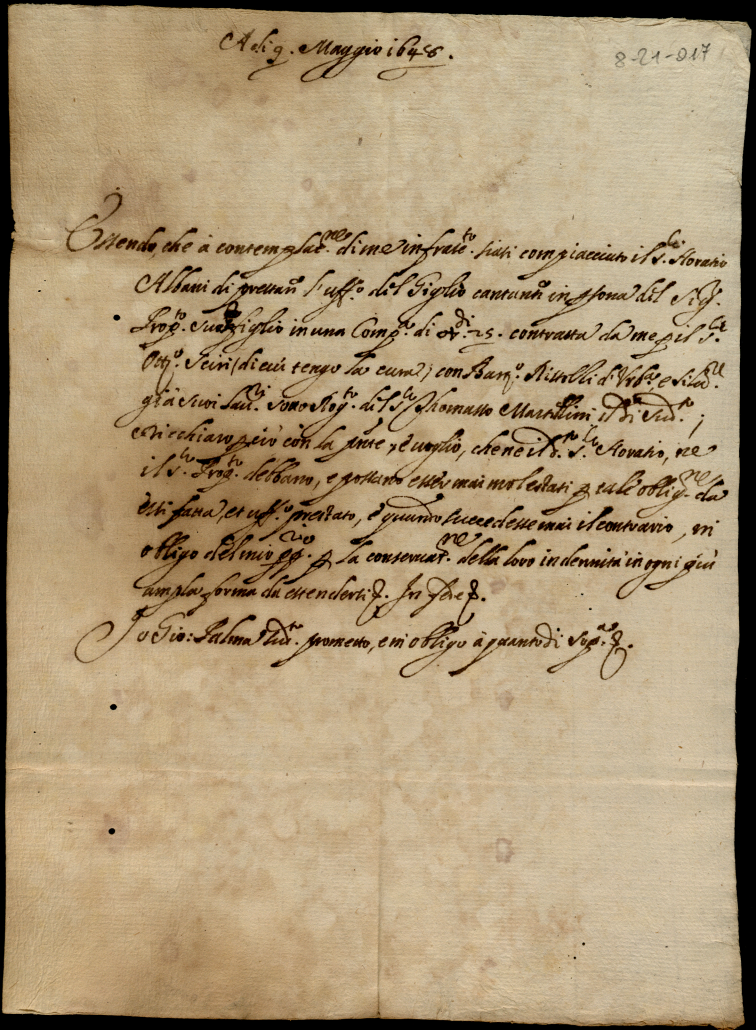 A di 9. Maggio 1648.
8-21-017
Essendo, che à contemplat.ne di me infrascr.to siati compiacciuto il S.r Horatio
Albani di prestar l'uff.o del Giglio cantante in psona del Sig.
Prop.o Suo figlio in una Comp.a di 25. contratta da me p il S.r
Ott.o (di cui tengo la cura) con Bart.o d'Urb.o, e
già Suoi Rog.to del S.r Thomasso il di Sud.to;
e dichiaro però con la pnte, e voglio, che ne il d.to S.r Horatio, ne
il S.r Prop.to debbano, e possano esser mai molestati p tale oblig.ne da
essi fatta, et uff.o prestato, e quando succedesse mai il contrario, mi
obligo del mio pp.rio p la conservat.ne della loro indennità in ogni più
ampla forma da estendersi &. In fede &.
Io Gio: Palma Sud.to prometto, e mi obligo à quanto di Sop.a &.